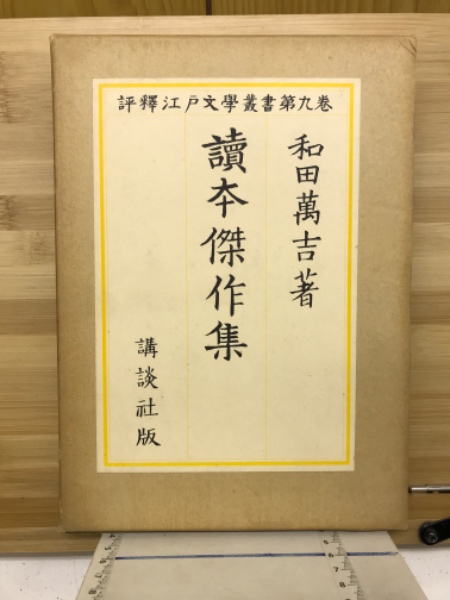 評釋江戸文學叢書第九卷
和田萬吉著
讀本傑作集
講談社版